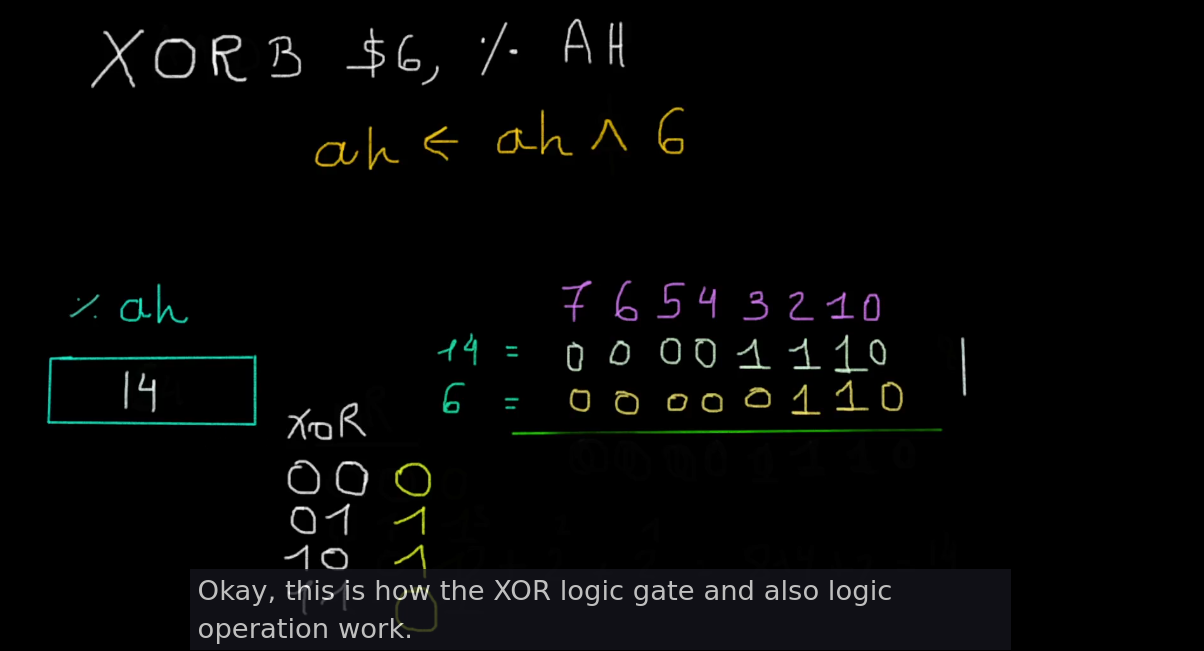 XORB $6, % AH
ah ← ah ∧ 6
% ah
14
7 6 5 4 3 2 1 0
14 = 0 0 0 0 1 1 1 0
6 = 0 0 0 0 0 1 1 0
XOR
0 0 0
0 1 1
1 0 1
1 1 0
Okay, this is how the XOR logic gate and also logic
operation work.